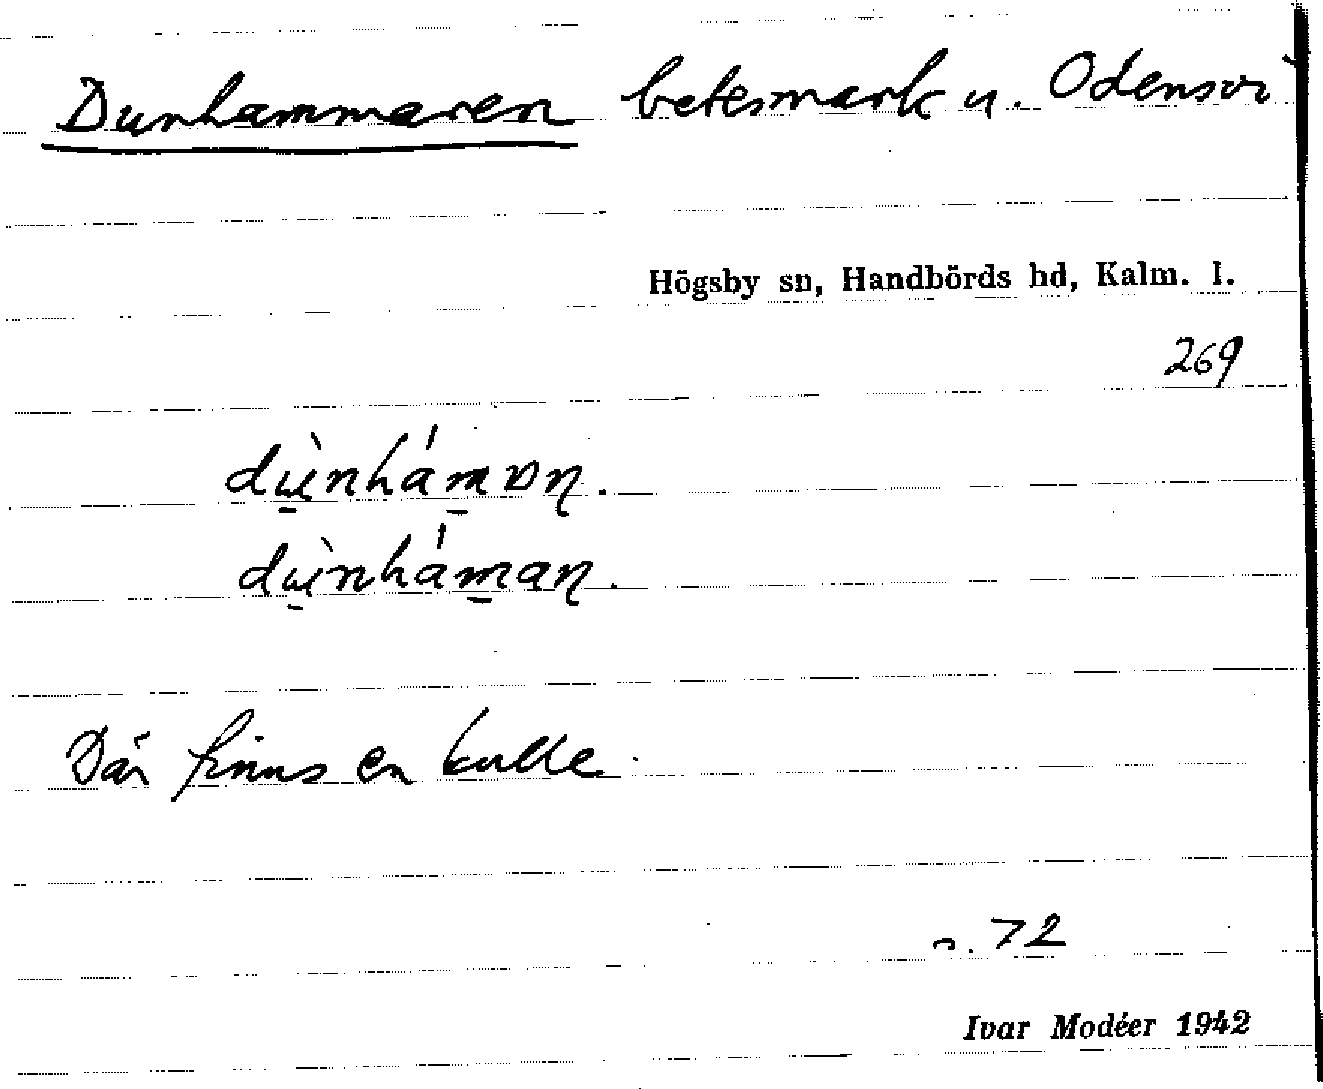 Dunhammaren betesmark u. Odensvi
Högsby sn, Handbörds hd, Kalm. l.
269
dùnhámɒn.
dùnháman.
Där finns en kulle.
s. 72
Ivar Modéer 1942